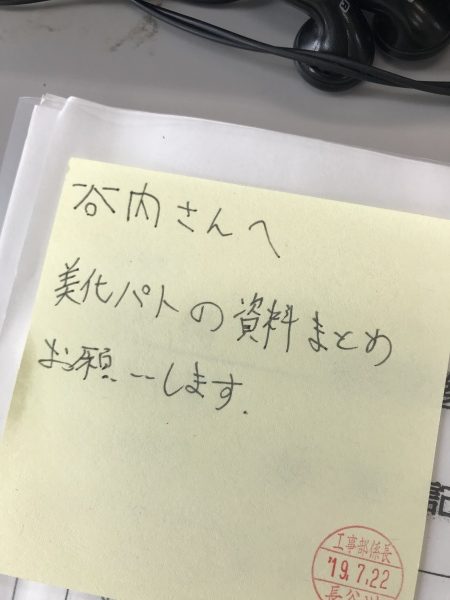 谷内さんへ
美化パトの資料まとめ
お願いします.
工事部係長
'19.7.22
長谷川
記